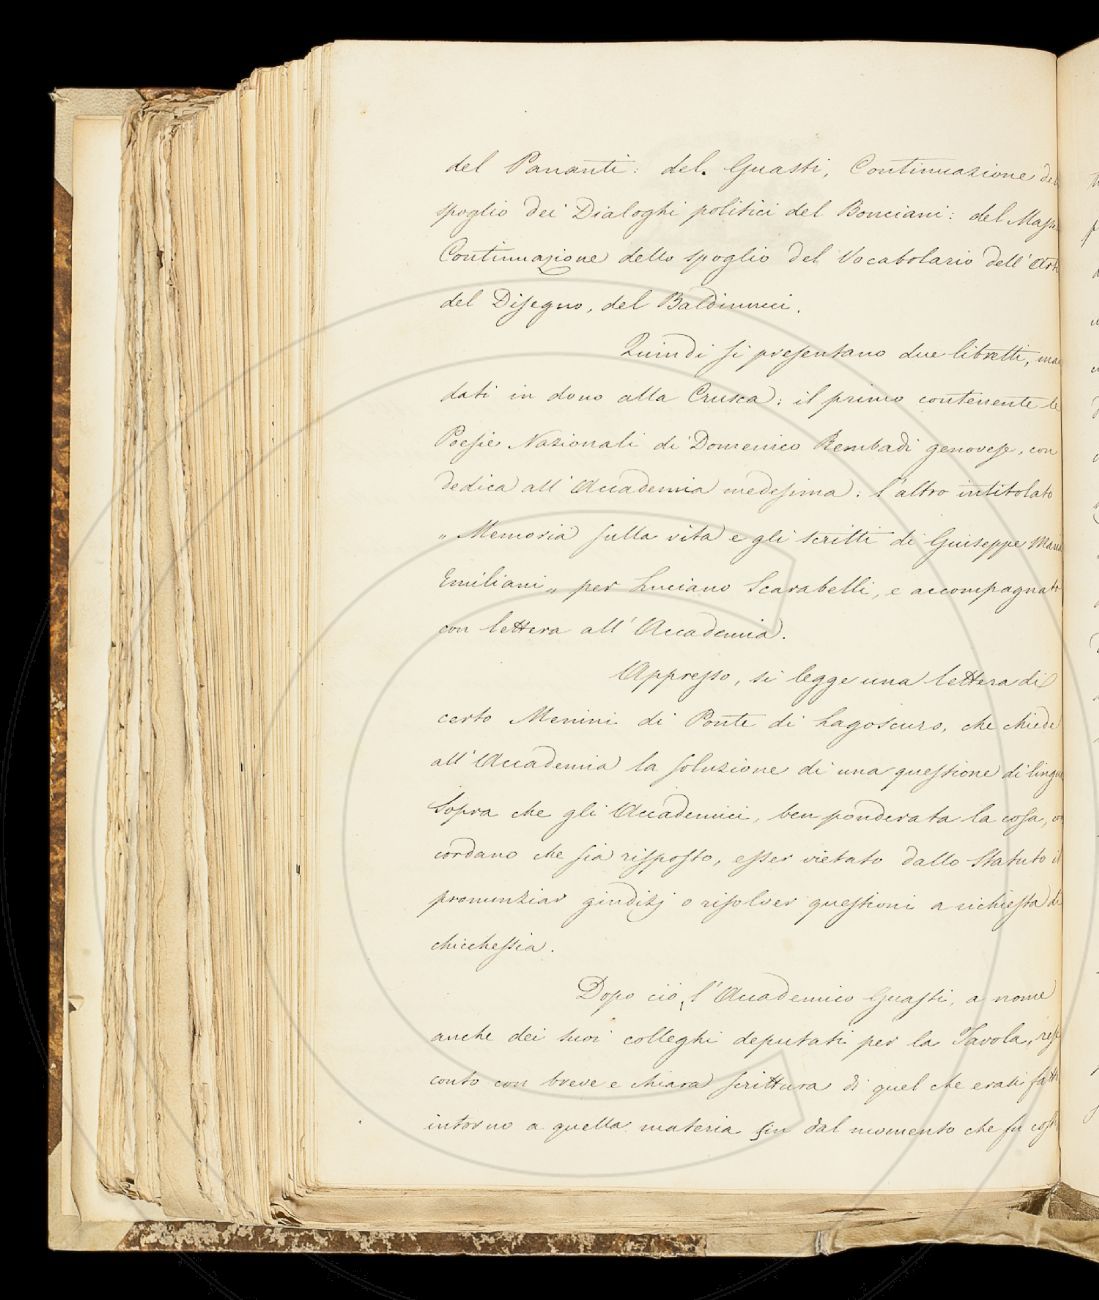 del Pananti: del Guasti, Continuazione de
spoglio dei Dialoghi politici del Bonciani: del
Continuazione dello spoglio del Vocabolario dell'
del Disegno, del Baldinucci.
Quindi si presentano due libretti, man
dati in dono alla Crusca: il primo contenente le
Poesie Nazionali di Domenico Rembadi genovese, con
dedica all'Accademia medesima: l'altro intitolato
„ Memoria sulla vita e gli scritti di Giuseppe Maria
Emiliani „ per Luciano Scarabelli, e accompagnato
con lettera all'Accademia.
Appresso, si legge una lettera di
certo Menini di Ponte di Lagoscuro, che chiede
all'Accademia la soluzione di una questione di lingua
Sopra che gli Accademici, ben ponderata la cosa,
cordano che sia risposto, esser vietato dallo Statuto il
pronunziar giudizj o risolver questioni a richiesta di
chicchessia.
Dopo ciò, l'Accademico Guasti, a nome
anche dei suoi colleghi deputati per la Tavola,
conto con breve e chiara scrittura di quel che erasi fatto
intorno a quella materia fin dal momento che fu